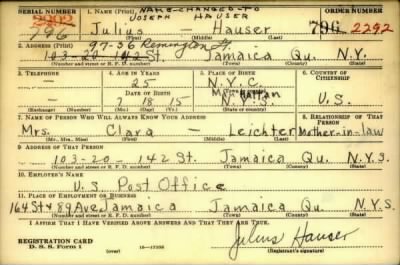 SERIAL NUMBER 1. NAME (Print) NAME-CHANGED-TO ORDER NUMBER
2292 JOSEPH HAUSER
796 Julius — Hauser 796 2292
(First) (Middle) (Last)
2. ADDRESS (Print) 97-36 Remington St.
103-20-142 St. Jamaica Qu. N.Y.
(Number and street or R. F. D. number) (Town) (County) (State)
3. TELEPHONE 4. AGE IN YEARS 5. PLACE OF BIRTH 6. COUNTRY OF CITIZENSHIP
— 25 N.Y.C.
DATE OF BIRTH Manhattan
— 7 18 15 N.Y.S. U.S.
(Exchange) (Number) (Mo.) (Day) (Yr.) (State or country)
7. NAME OF PERSON WHO WILL ALWAYS KNOW YOUR ADDRESS 8. RELATIONSHIP OF THAT PERSON
Mrs. Clara — Leichter Mother-in-law
(Mr., Mrs., Miss) (First) (Middle) (Last)
9. ADDRESS OF THAT PERSON
103-20-142 St. Jamaica Qu. N.Y.S.
(Number and street or R. F. D. number) (Town) (County) (State)
10. EMPLOYER'S NAME
U.S. Post Office
11. PLACE OF EMPLOYMENT OR BUSINESS
164 St & 89 Ave. Jamaica Jamaica Qu. N.Y.S.
(Number and street or R. F. D. number) (Town) (County) (State)
I AFFIRM THAT I HAVE VERIFIED ABOVE ANSWERS AND THAT THEY ARE TRUE.
REGISTRATION CARD
D. S. S. Form 1 16—17105 Julius Hauser
(Registrant's signature)